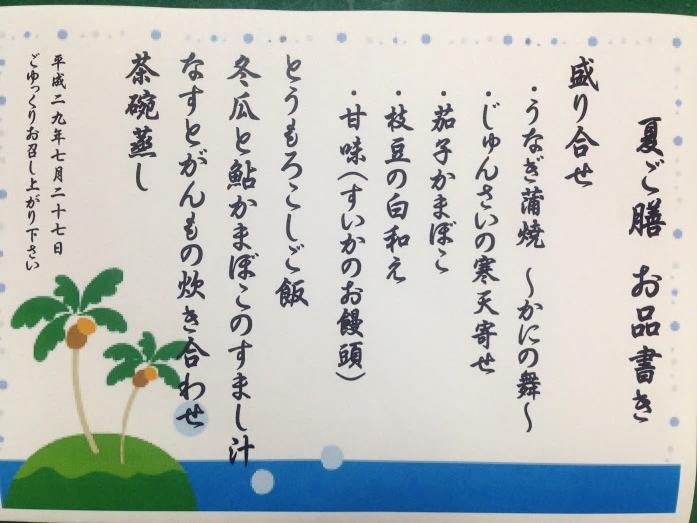 夏ご膳 お品書き
盛り合せ
・うなぎ蒲焼 ～かにの舞～
・じゅんさいの寒天寄せ
・茄子かまぼこ
・枝豆の白和え
・甘味(すいかのお饅頭)
とうもろこしご飯
冬瓜と鮎かまぼこのすまし汁
なすとがんもの炊き合わせ
茶碗蒸し
平成二九年七月二十七日
ごゆっくりお召し上がり下さい